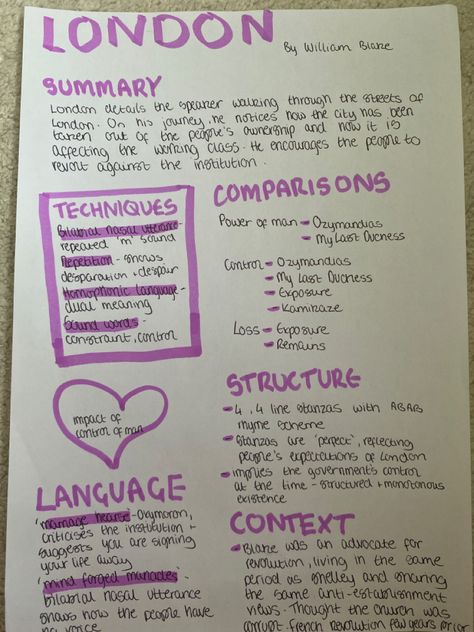 LONDON
By William Blake
SUMMARY
London details the speaker walking through the streets of
London. On his journey, he notices how the city has been
taken out of the people's ownership and now it is
affecting the working class. He encourages the people to
revolt against the institution.
TECHNIQUES
Bilabial nasal utterance-
repeated 'm' sound
Repetition - shows
desparation + despair
Homophonic language-
dual meaning
Sound words-
constraint, control
impact of
control of man
LANGUAGE
'marriage hearse'-oxymoron,
criticises the institution +
suggests you are signing
your life away
'mind forged manacles'-
bilabial nasal utterance
shows how the people have
no voice
COMPARISONS
Power of man - Ozymandias
- My Last Duchess
Control - Ozymandias
- My Last Duchess
- Exposure
- Kamikaze
Loss - Exposure
- Remains
STRUCTURE
- 4, 4 line stanzas with ABAB
rhyme scheme
- Stanzas are 'perfect', reflecting
people's expectations of London
- implies the government's control
at the time - structured + monotonous
existence
CONTEXT
- Blake was an advocate for
revolution, living in the same
period as Shelley and sharing
the same anti-establishment
views. Thought the church was
corrupt. french revolution few years prior